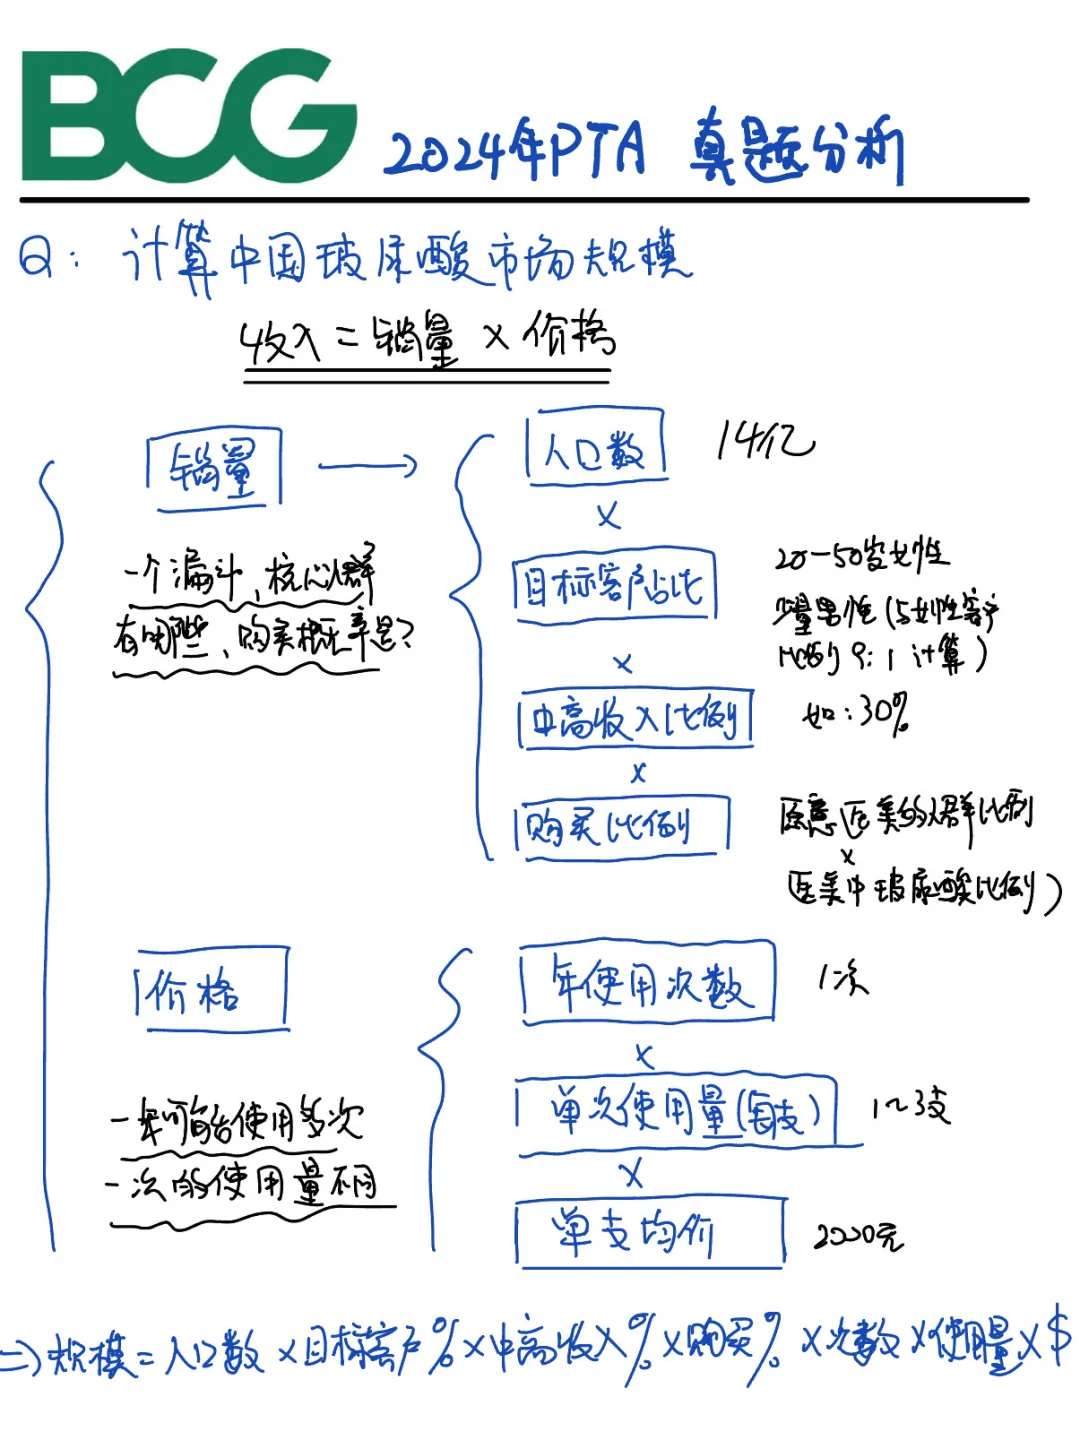 BCG 2024年PTA 真题分析
Q: 计算中国玻尿酸市场规模
收入 = 销量 × 价格
销量 → 人口数 14亿
×
一个漏斗, 核心人群
有哪些, 购买概率是?
目标客户占比
20-50岁女性
少量男性(与女性客户
比例9:1 计算)
×
中高收入比例 如:30%
×
购买比例
愿意医美的人群比例
×
医美中玻尿酸比例)
价格
年使用次数 1次
×
一年可能使用多次
一次的使用量不同
单次使用量(每支) 1~3支
×
单支均价 2000元
=> 规模 = 人口数 × 目标客户% × 中高收入% × 购买% × 次数 × 使用量 × $